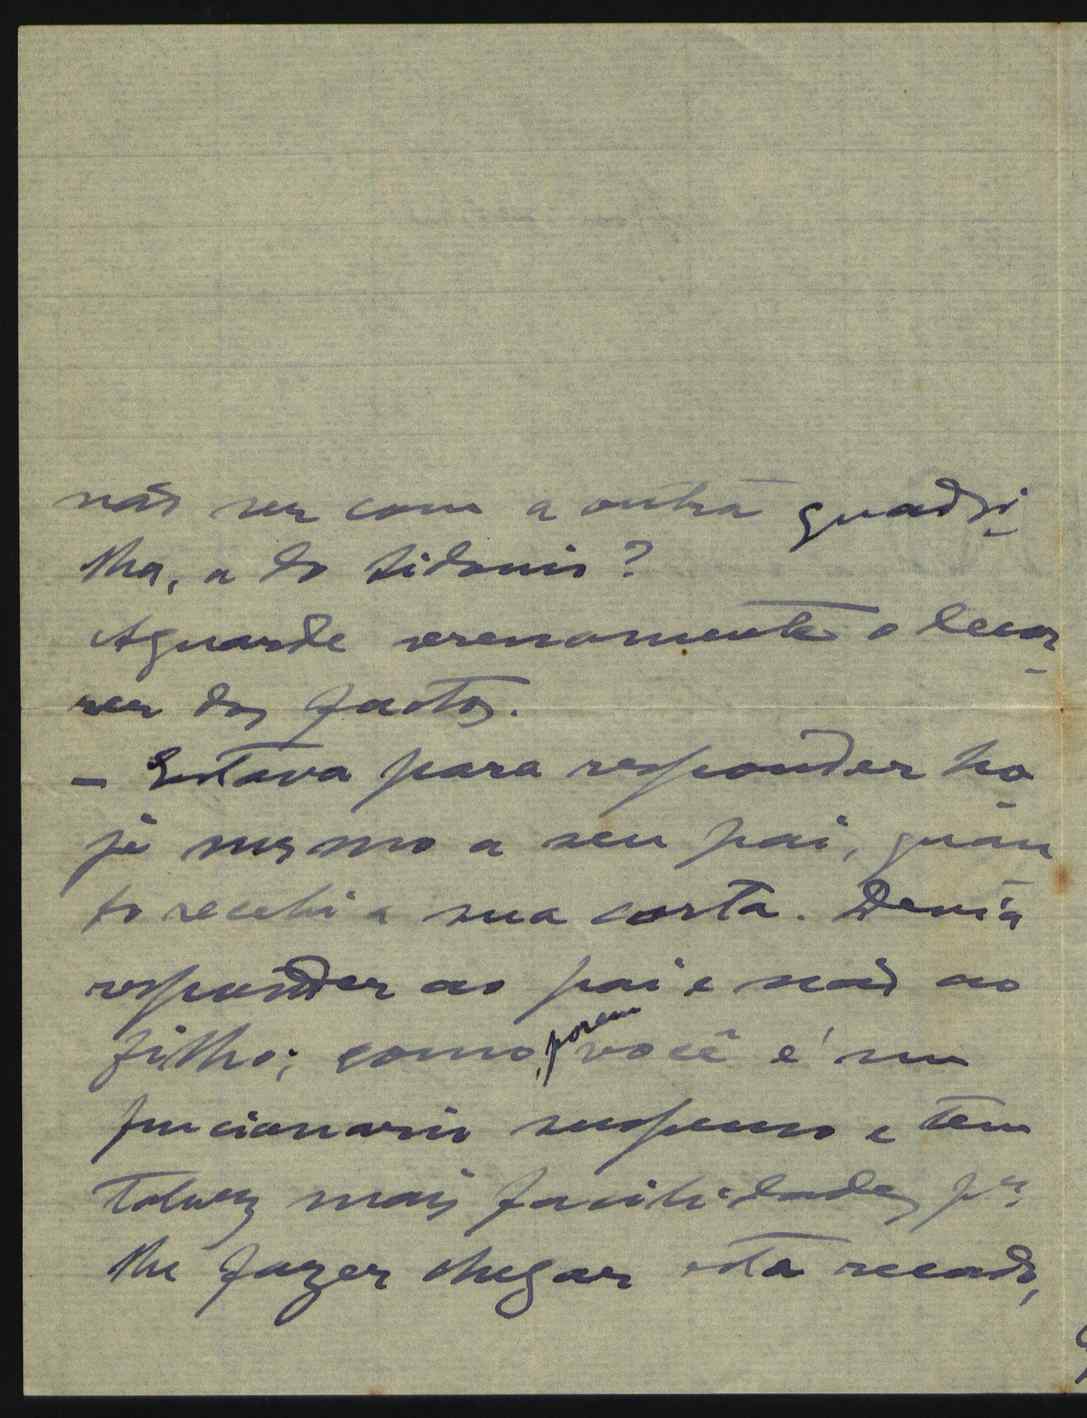 não ser com a outra quadri-
lha, a do Sidonio?
Aguarde serenamente o decor-
rer dos factos.
– Estava para responder ho-
je mesmo a seu pai, quan-
do recebi a sua carta. Devia
responder ao pai e não ao
filho; como, porem, você é um
funcionario suspenso e tem
talvez mais facilidades pª
lhe fazer chegar este recado,